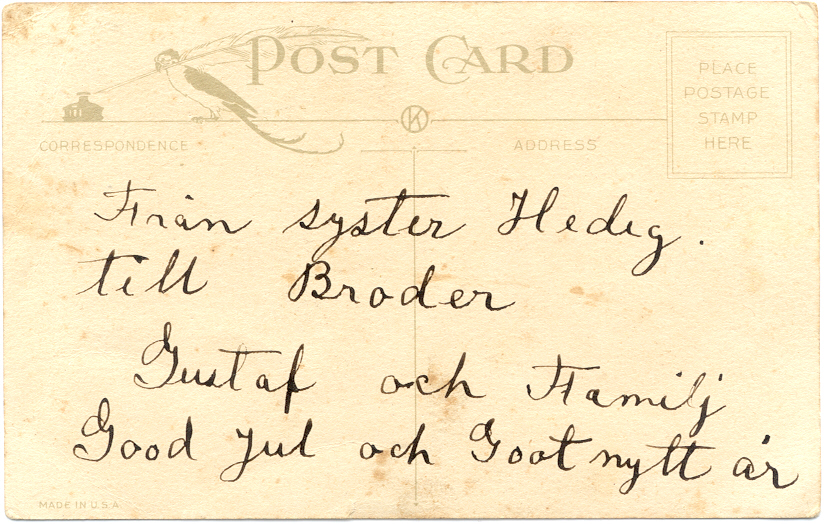 POST CARD
PLACE
POSTAGE
STAMP
HERE
K
CORRESPONDENCE
ADDRESS
Från syster Hedig.
till Broder
Gustaf och Familj
Good Jul och Goot nytt år
MADE IN U.S.A.